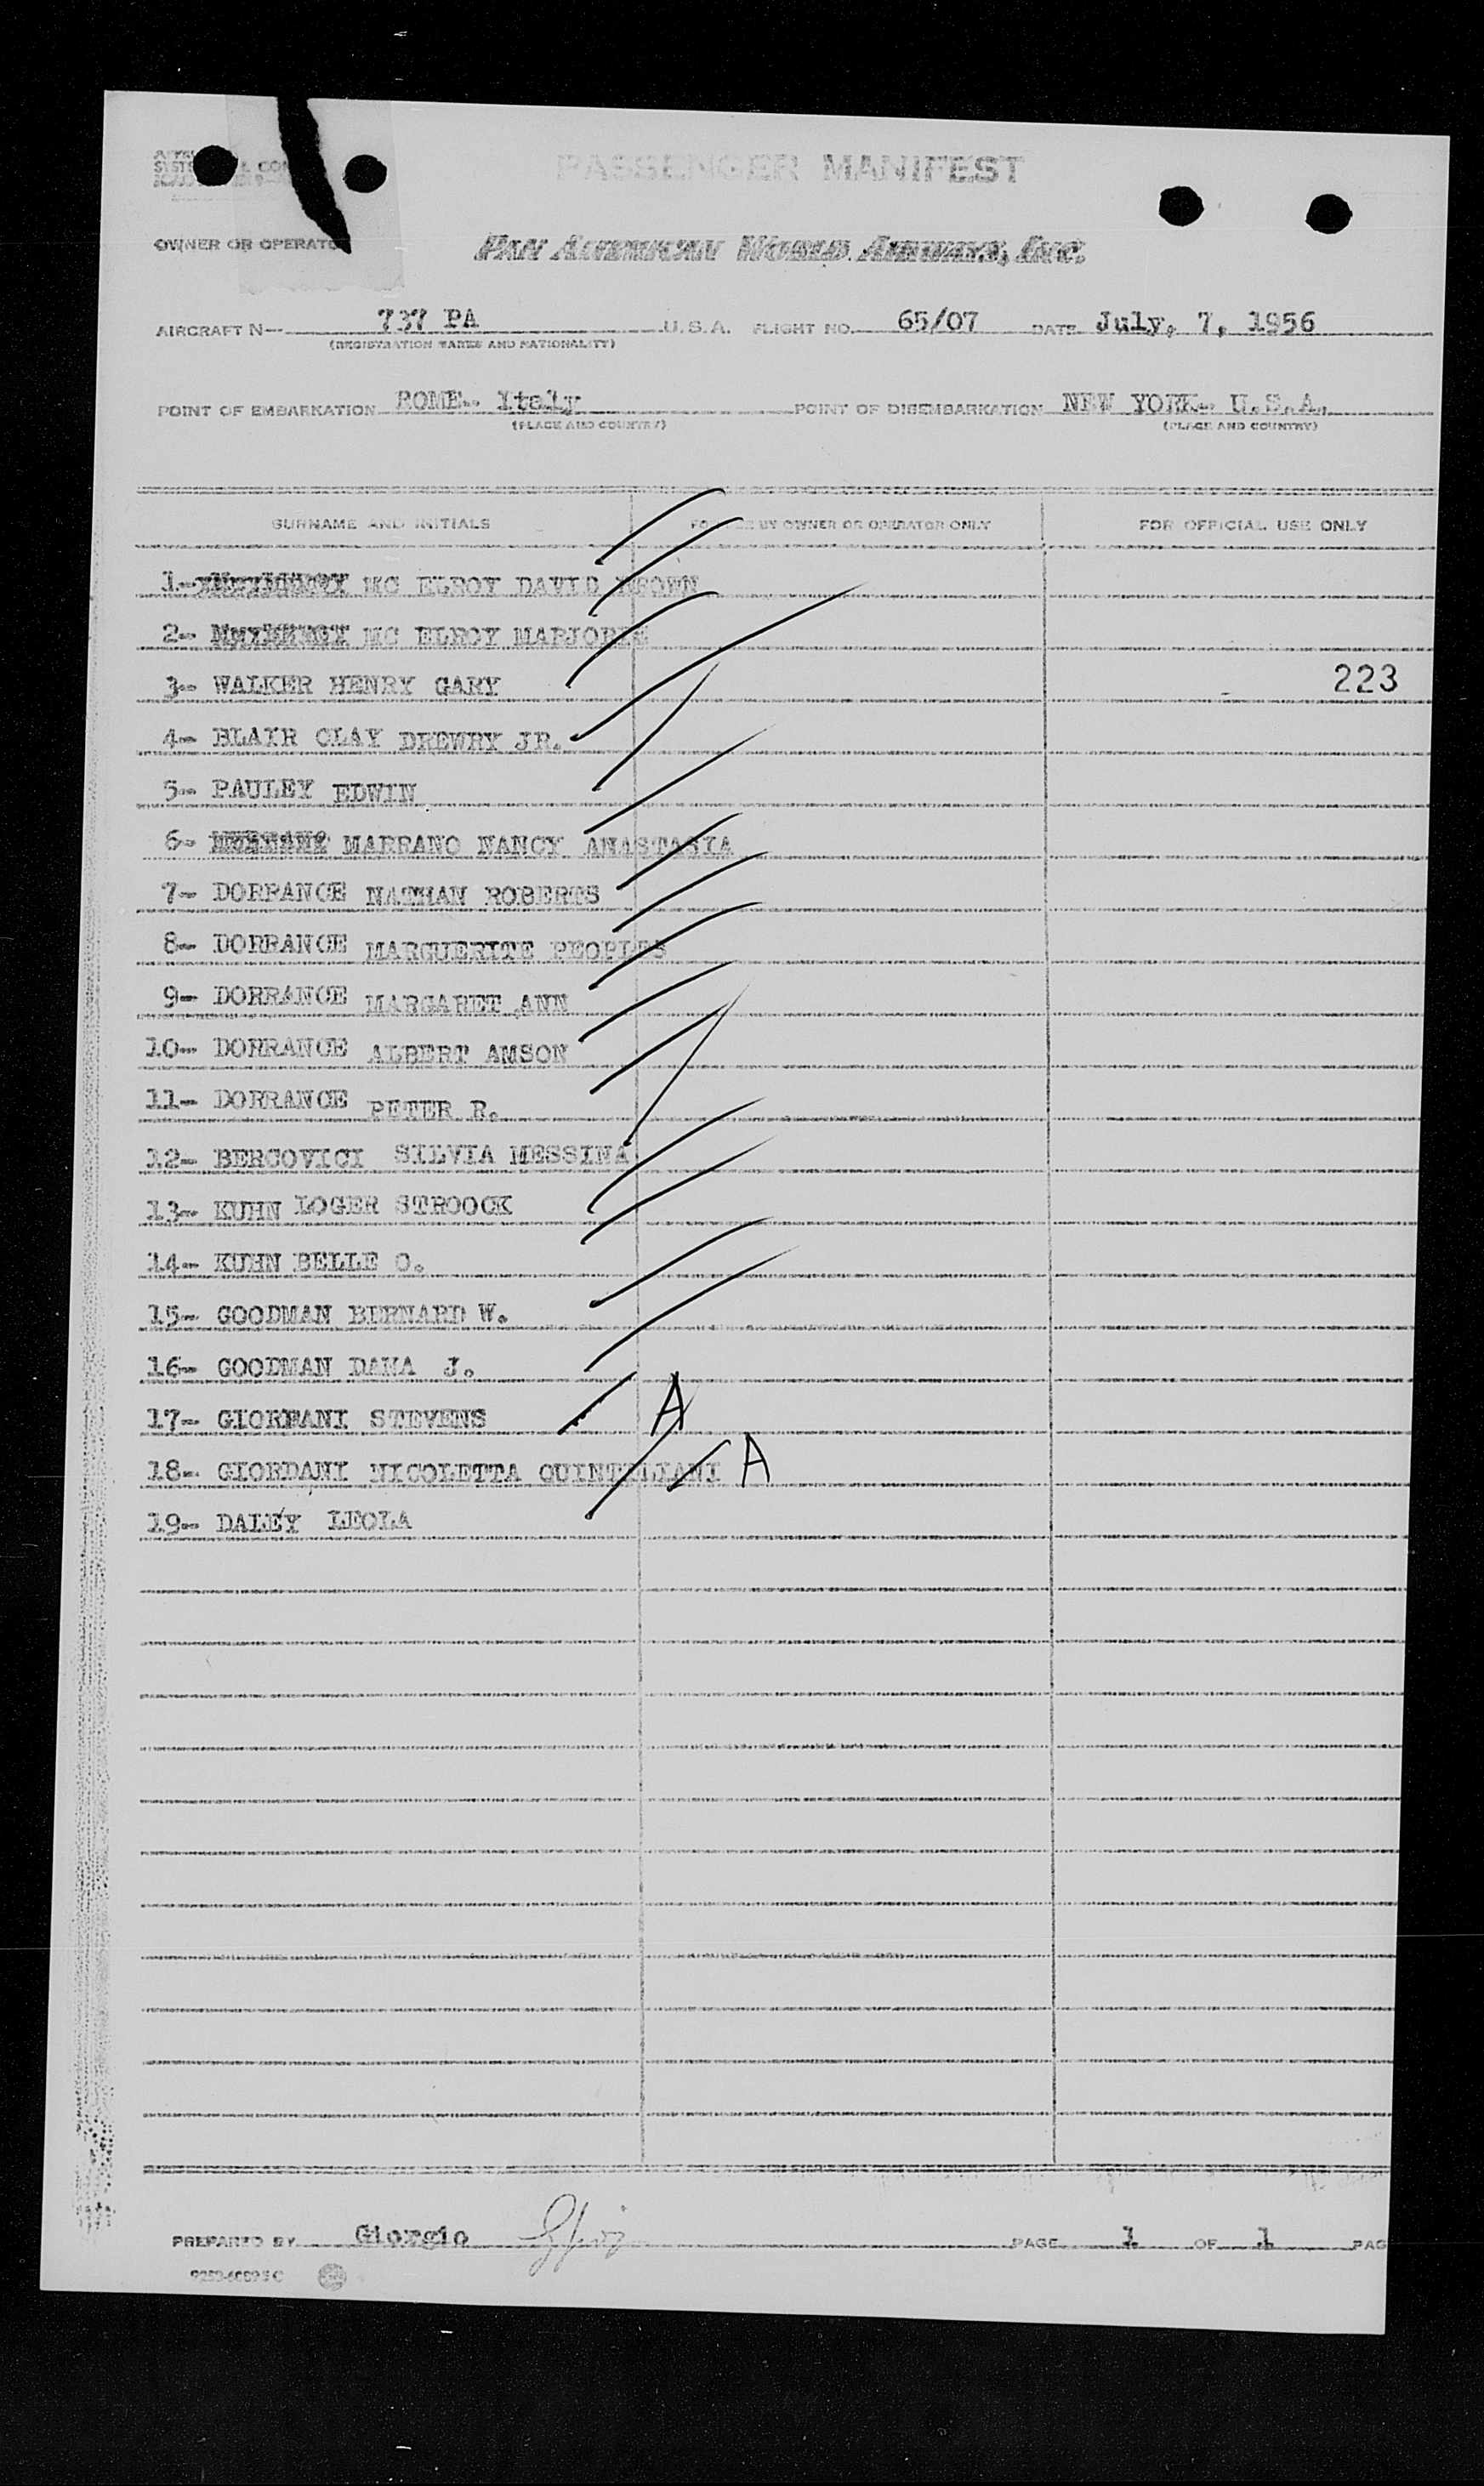 PASSENGER MANIFEST
OWNER OR OPERATOR PAN AMERICAN WORLD AIRWAYS, INC.
AIRCRAFT N— 737 PA U.S.A. FLIGHT NO. 65/07 DATE July, 7, 1956
(REGISTRATION MARKS AND NATIONALITY)
POINT OF EMBARKATION ROME- Italy POINT OF DISEMBARKATION NEW YORK- U.S.A.
(PLACE AND COUNTRY) (PLACE AND COUNTRY)
SURNAME AND INITIALS FOR USE BY OWNER OR OPERATOR ONLY FOR OFFICIAL USE ONLY
1- MC ELROY DAVID BROWN
2- MC ELROY MARJORIE
3- WALKER HENRY GARY 223
4- BLAIR CLAY DREWRY JR.
5- PAULEY EDWIN
6- MARRANO NANCY ANASTASIA
7- DORRANCE NATHAN ROBERTS
8- DORRANCE MARGUERITE PEOPLES
9- DORRANCE MARGARET ANN
10- DORRANCE ALBERT AMSON
11- DORRANCE PETER R.
12- BERCOVICI SILVIA MESSINA
13- KUHN LOGER STROOCK
14- KUHN BELLE O.
15- GOODMAN BERNARD W.
16- GOODMAN DANA J.
17- GIORDANI STEVENS A
18- GIORDANI NICOLETTA QUINTILIANI A
19- DALEY LEOLA
PREPARED BY Giorgio PAGE 1 OF 1 PAG